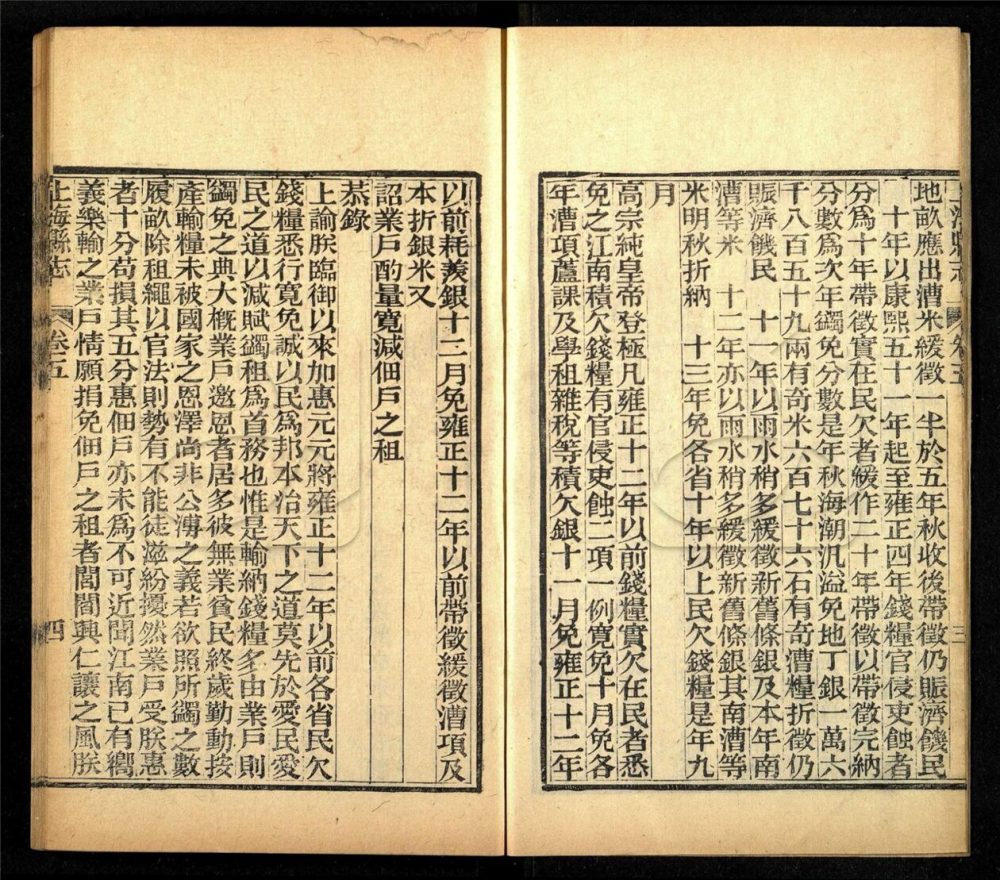 地畝應出漕米緩徵一半於五年秋收後帶徵仍賑濟饑民
十年以康熙五十一年起至雍正四年錢糧官侵吏蝕者
分爲十年帶徵實在民欠者緩作二十年帶徵以帶徵完納
分數爲次年蠲免分數是年秋海潮汎溢免地丁銀一萬六
千八百五十九兩有奇米六百七十六石有奇漕糧折徵仍
賑濟饑民 十一年以雨水稍多緩徵新舊條銀及本年南
漕等米 十二年亦以雨水稍多緩徵新舊條銀其南漕等
米明秋折納 十三年免各省十年以上民欠錢糧是年九
月
高宗純皇帝登極凡雍正十二年以前錢糧實欠在民者悉
免之江南積欠錢糧有官侵吏蝕二項一例寬免十月免各
年漕項蘆課及學租雜稅等積欠銀十一月免雍正十二年
上海縣志 卷五 三
以前耗羨銀十二月免雍正十二年以前帶徵緩徵漕項及
本折銀米又
詔業戶酌量寬減佃戶之租
恭錄
上諭朕臨御以來加惠元元將雍正十二年以前各省民欠
錢糧悉行寬免誠以民爲邦本治天下之道莫先於愛民愛
民之道以減賦蠲租爲首務也惟是輸納錢糧多由業戶則
蠲免之典大槪業戶邀恩者居多彼無業貧民終歲勤動按
產輸糧未被國家之恩澤尚非公溥之義若欲照所蠲之數
履畝除租繩以官法則勢有不能徒滋紛擾然業戶受朕惠
者十分苟損其五分惠佃戶亦未爲不可近聞江南已有嚮
義樂輸之業戶情願捐免佃戶之租者閭閻興仁讓之風朕
上海縣志 卷五 四